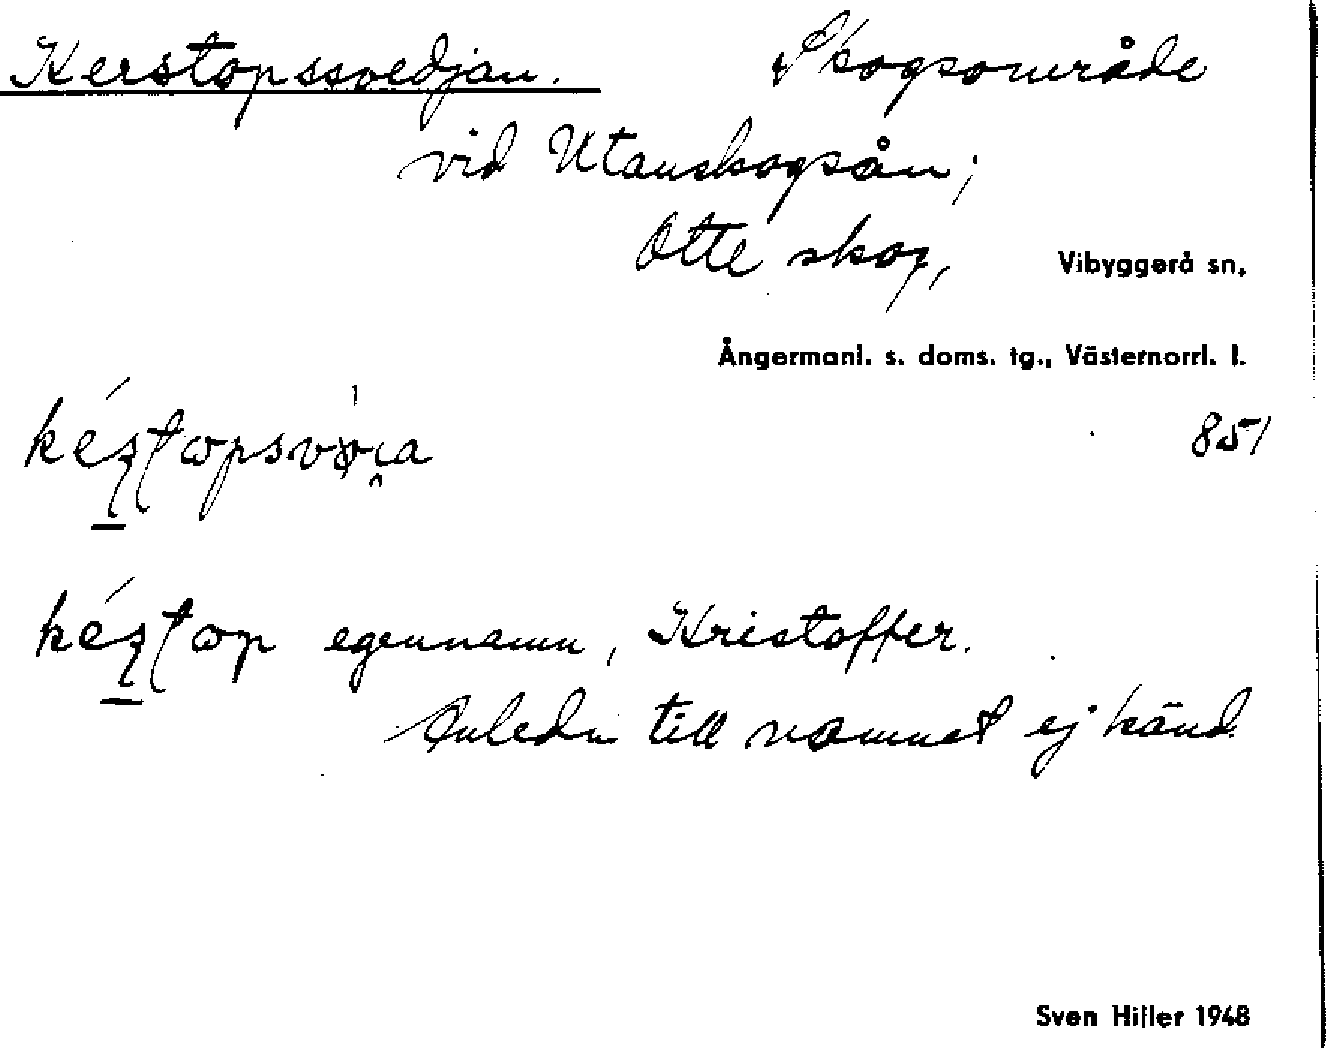 Kerstopssvedjan. Skogsområde
vid Utanskogsån;
Otte skog, Vibyggerå sn,
Ångermanl. s. doms. tg., Västernorrl. l.
851
egennamn, Kristoffer.
Anledn till namnet ej känd.
Sven Hiller 1948